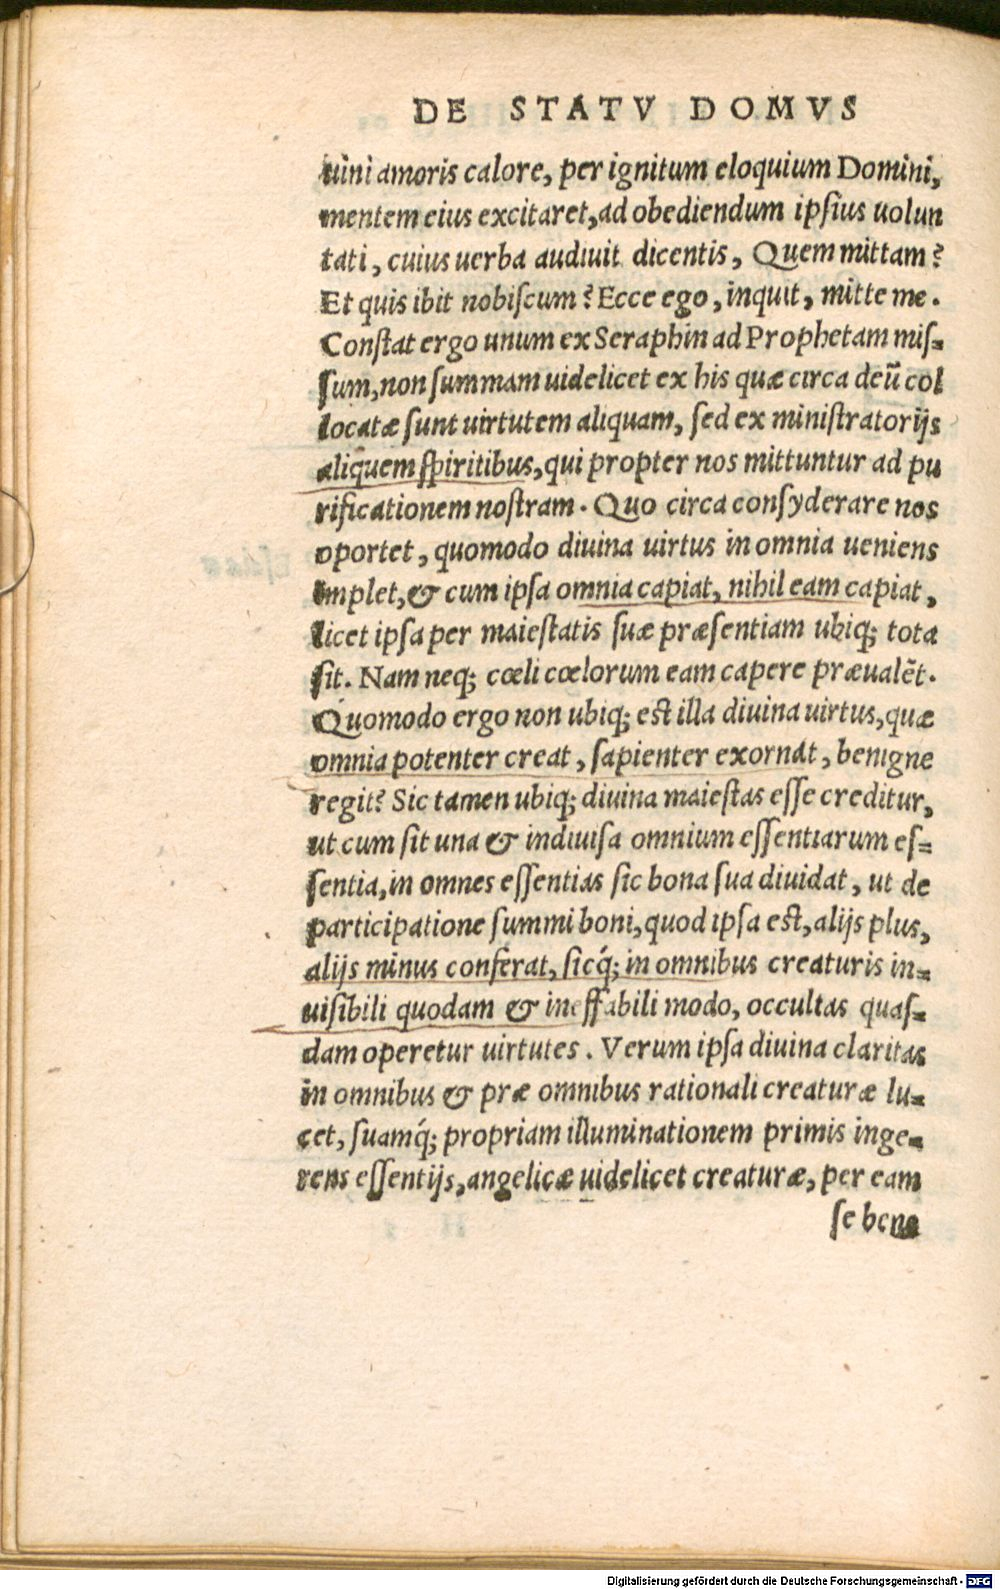 DE STATV DOMVS
uini amoris calore, per ignitum eloquium Domini,
mentem eius excitaret, ad obediendum ipſius uolun
tati, cuius uerba audiuit dicentis, Quem mittam?
Et quis ibit nobiſcum? Ecce ego, inquit, mitte me.
Conſtat ergo unum ex Seraphin ad Prophetam miſ-
ſum, non ſummam uidelicet ex his quæ circa deū col
locatæ ſunt uirtutem aliquam, ſed ex miniſtratorijs
aliquem ſpiritibus, qui propter nos mittuntur ad pu
rificationem noſtram. Quo circa conſyderare nos
oportet, quomodo diuina uirtus in omnia ueniens
implet, & cum ipſa omnia capiat, nihil eam capiat,
licet ipſa per maieſtatis ſuæ præſentiam ubiq; tota
ſit. Nam neq; cœli cœlorum eam capere præualēt.
Quomodo ergo non ubiq; eſt illa diuina uirtus, quæ
omnia potenter creat, ſapienter exornat, benigne
regit? Sic tamen ubiq; diuina maieſtas eſſe creditur,
ut cum ſit una & indiuiſa omnium eſſentiarum eſ-
ſentia, in omnes eſſentias ſic bona ſua diuidat, ut de
participatione ſummi boni, quod ipſa eſt, alijs plus,
alijs minus conferat, ſicq́; in omnibus creaturis in-
uiſibili quodam & ineffabili modo, occultas quaſ-
dam operetur uirtutes. Verum ipſa diuina claritas
in omnibus & præ omnibus rationali creaturæ lu-
cet, ſuamq́; propriam illuminationem primis inge-
rens eſſentijs, angelicæ uidelicet creaturæ, per eam
ſe bene
Digitalisierung gefördert durch die Deutsche Forschungsgemeinschaft - DFG